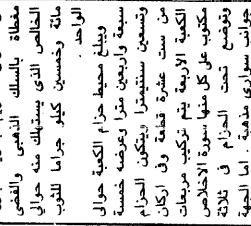 مغطاة بالسلك الذهبى والفضى
الخالص الذى يستهلك منه حوالي
مائة وخمسين كيلو جراما للثوب
الواحد.
ويبلغ محيط حزام الكعبة حوالي
سبعة واربعين مترا وعرضه خمسة
وتسعين سنتيمترا ويتكون الحزام
من ست عشرة قطعة وفى اركان
الكعبة الاربعة يتم تركيب مربعات
مكتوب على كل منها سورة الاخلاص
وتوضع تحت الحزام فى ثلاثة
جوانب سوارى مذهبة. اما